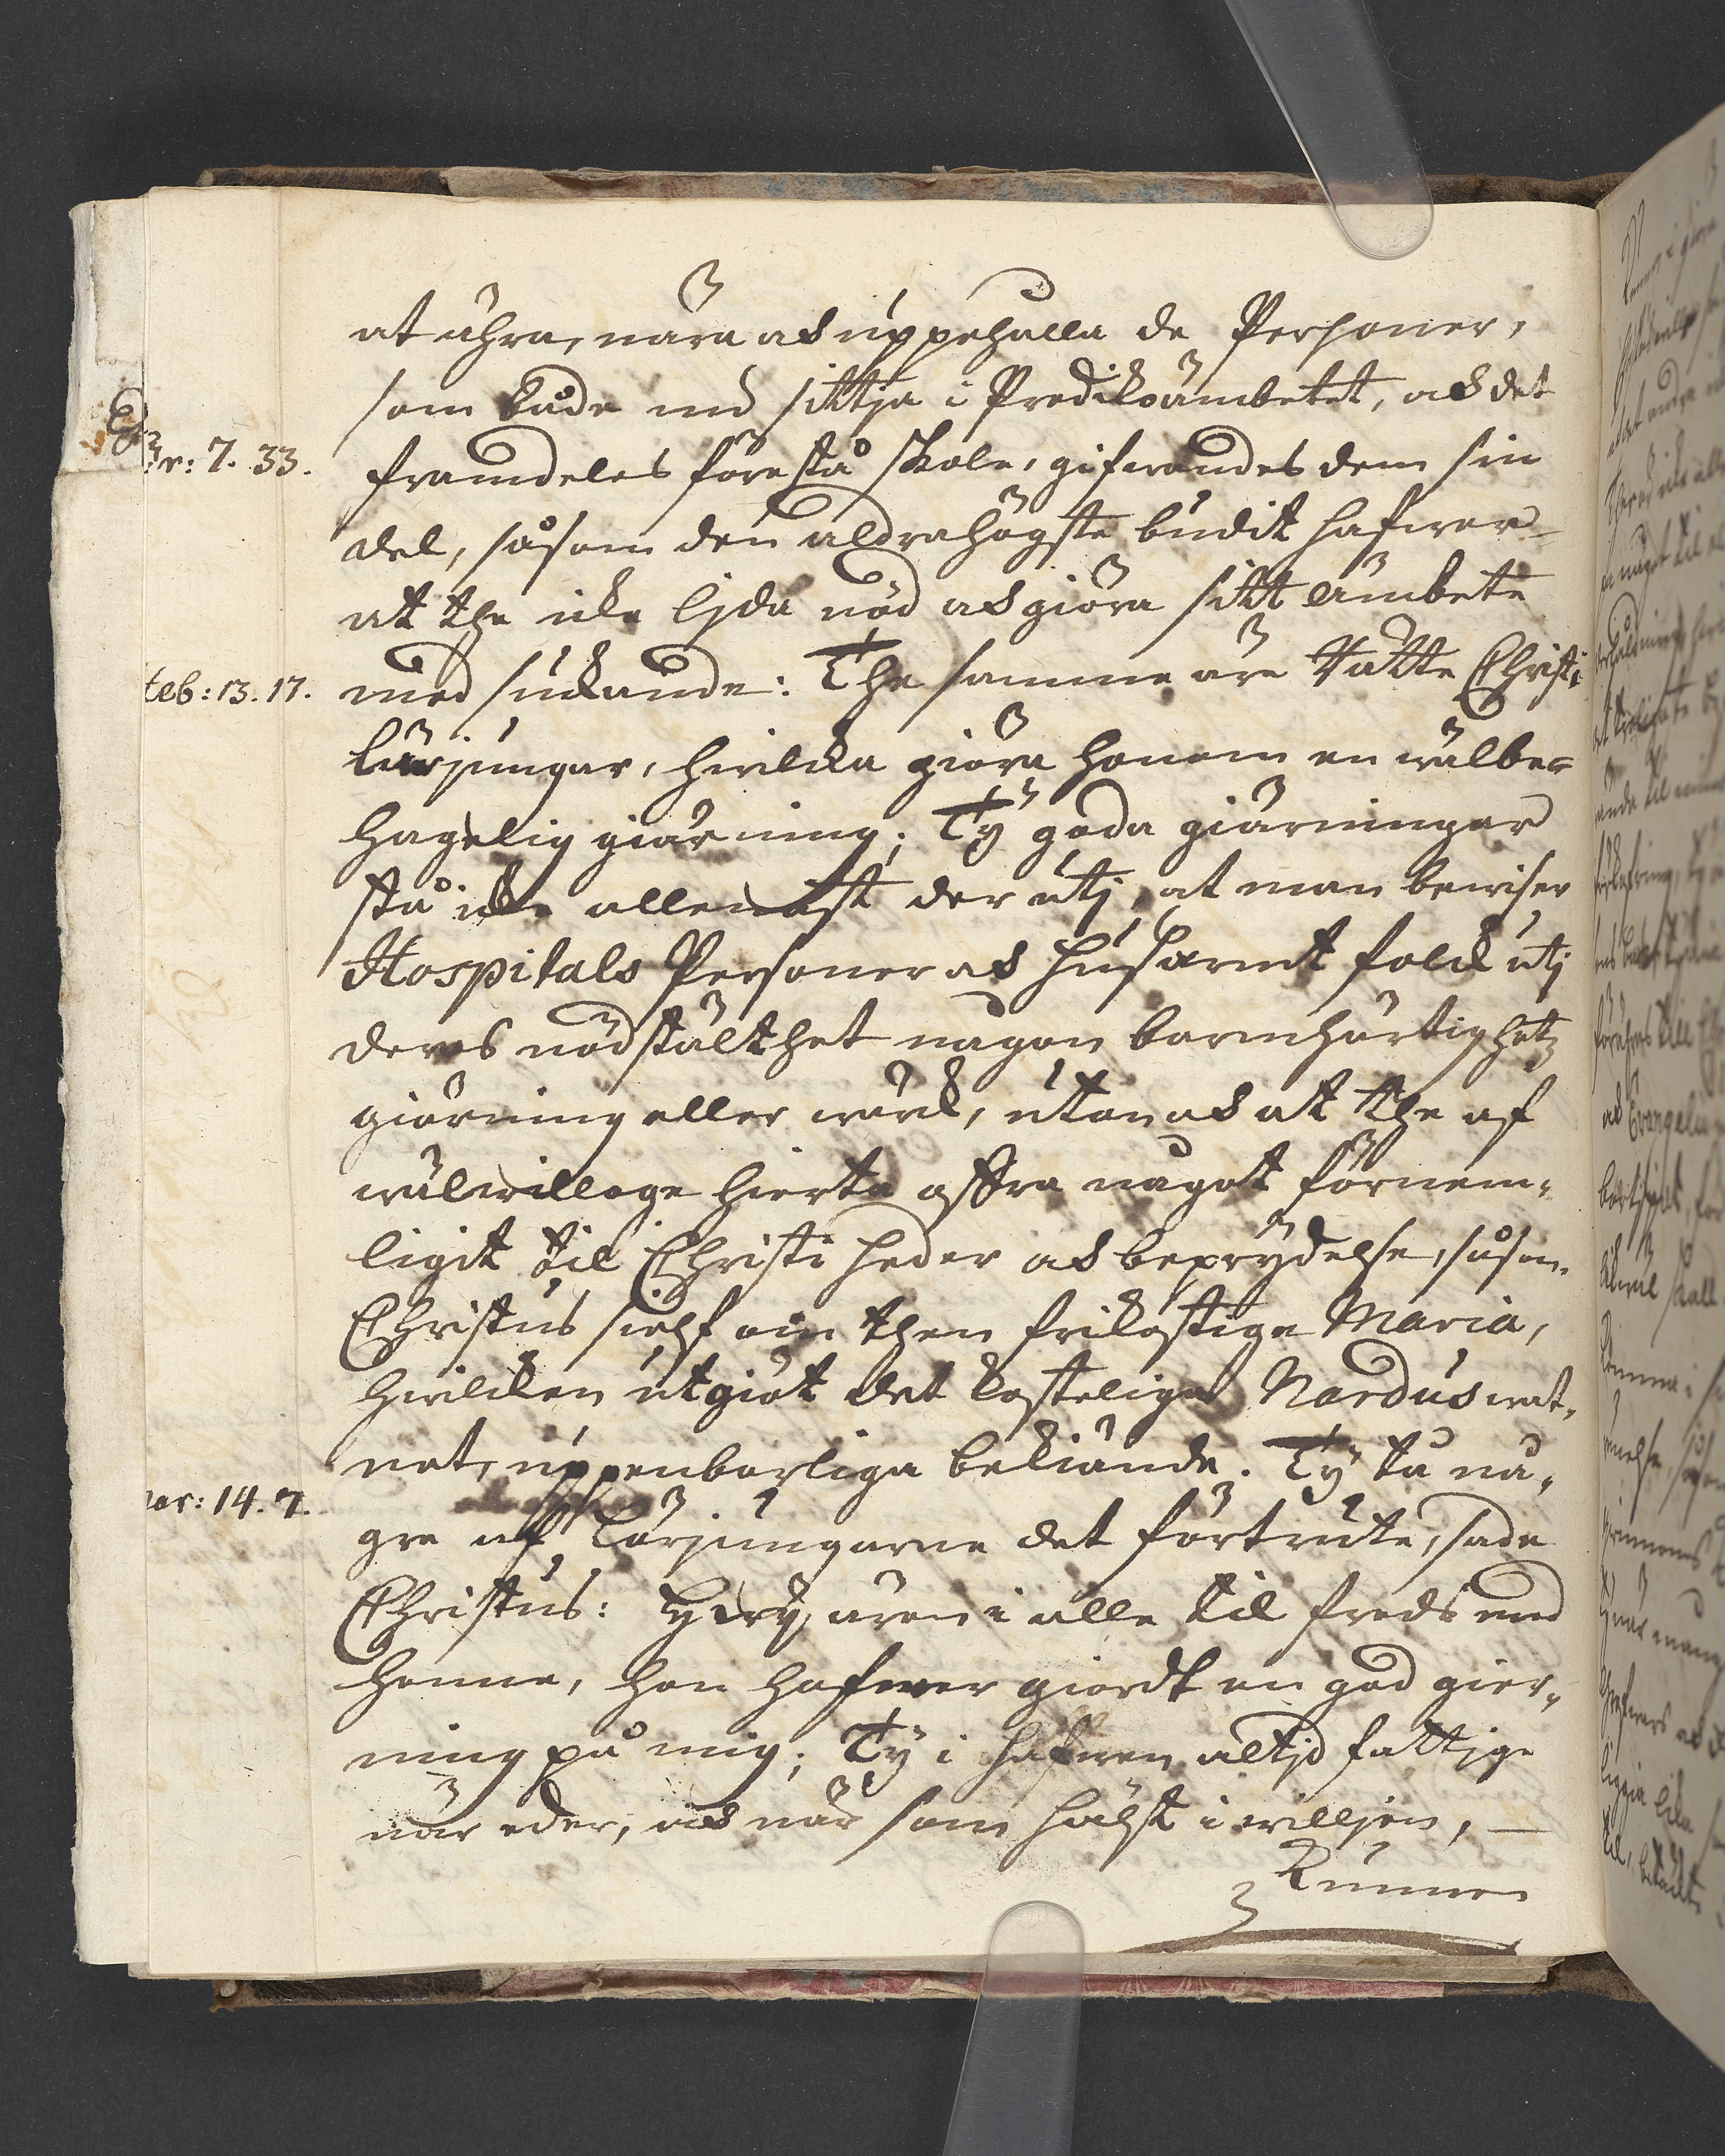 at ährra, nära ok uppehålla de Personer,
som både nu sittja i Predikoämbetet, ok det
framdeles förestå skole, gifwandes dem sin
Sir: 7. 33.
del, såsom den aldrahögste budit hafwer
at the icke lijda nöd ok giöra sitt ämbete
Heb: 13. 17.
med suckande: The samme äre rätte Christi
lärjungar, hwilcka giöra honom en wälbe=
hagelig giärning; Ty goda giärningar
stå icke allenast der utj, at man bewiser
Hospitals Personer ok husarmt folck utj
deres nödstälthet någon barmhärtighetz
giärning eller wärck, utan ok at the af
wälwilloge hierta offra något förnem=
ligit til Christi heder ok beprydelse, såsom
Christus sielf om then frikostige Maria,
hwilcken utgiöt det kostelige Nardus wat=
net, uppenbarliga bekiände. Ty tå nå=
Mar: 14. 7.
gre af Lärjungarne det förtrutne, sade
Christus: ären i alle til freds med
henne, hon hafwer giordt en god gier=
ning på mig; Ty i hafwen altijd fattige
när eder, ok när som hälst i willjen,
Kunnen